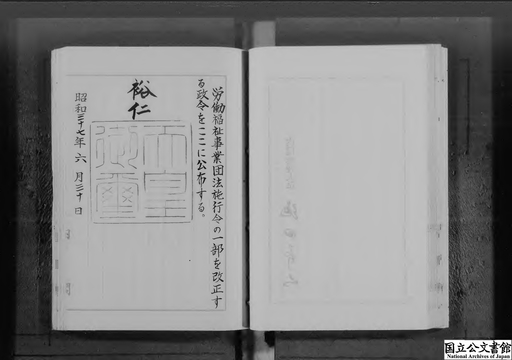 労働福祉事業団法施行令の一部を改正す
る政令をここに公布する。
裕仁
天皇
御璽
昭和三十七年六月三十日
国立公文書館
National Archives of Japan